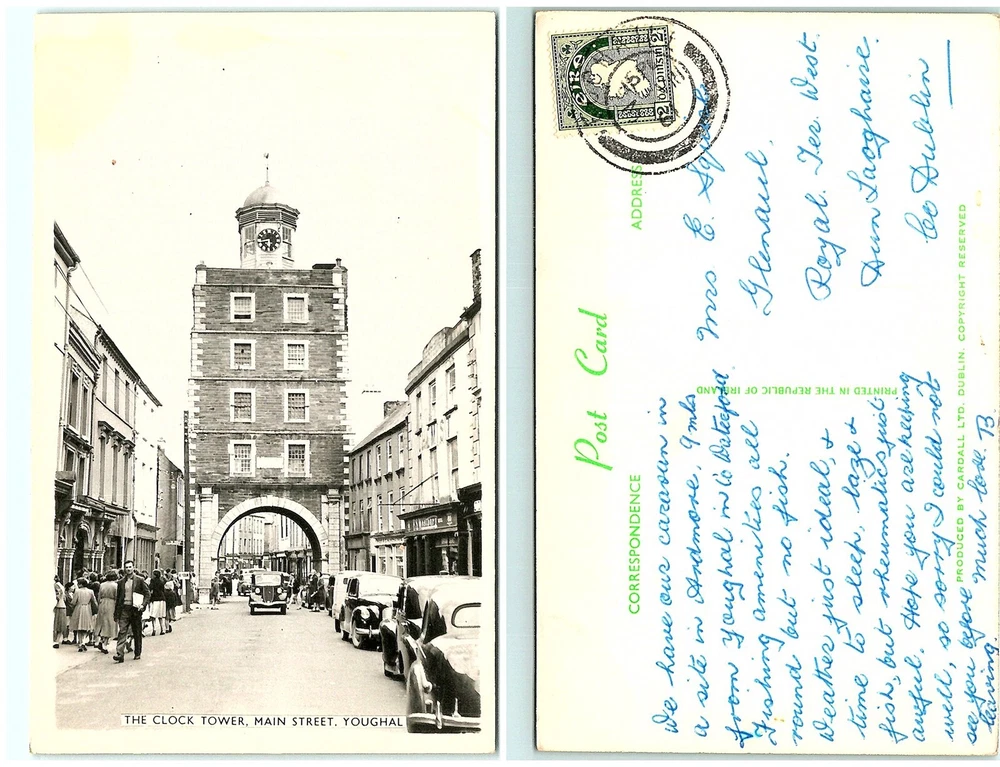 THE CLOCK TOWER, MAIN STREET, YOUGHAL
Post Card
CORRESPONDENCE
ADDRESS
We have our caravan in
a site in Ardmore, 9 mls
from Youghal in Co Waterford
Fishing amenities all
round but no fish.
Weather just ideal, &
time to sleep, laze &
fish, but rheumatics just
awful. Hope you are keeping
well, so sorry I could not
see you before
leaving.
Much love. B
Mrs E
Glenaul.
Royal. Ter. West.
Dun Laoghaire.
Co Dublin
EIRE
2
2
PRINTED IN THE REPUBLIC OF IRELAND
PRODUCED BY CARDALL LTD. DUBLIN. COPYRIGHT RESERVED